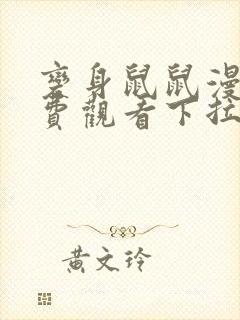 變身鼠鼠漫
費觀看下拉
黃文玲